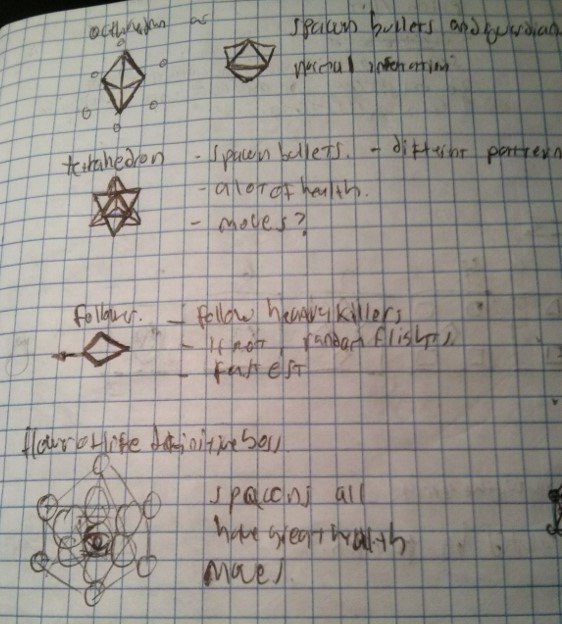 octahedron as
spawn bullets and guardian
normal interaction
tetrahedron - spawn bullets. - different pattern
- a lot of health.
- moves?
follower. - follow heavy killers
- if not, random flights
- fastest
flower of life definitive boss
spawns all
have great health
moves